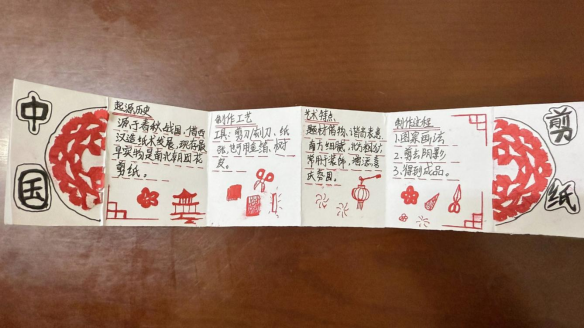 中
国
起源历史
源于春秋战国，
汉造纸术发展，现存最
早实物是南北朝团花
剪纸。
制作工艺
工具：剪刀/刻刀、纸
张，也可用金箔、树
皮。
艺术特点
题材借物、谐音表意
南方细腻、北方粗犷
常用于装饰，
民祭图。
制作过程
1.图案画法
2.剪去阴影
3.得到成品。
剪
纸